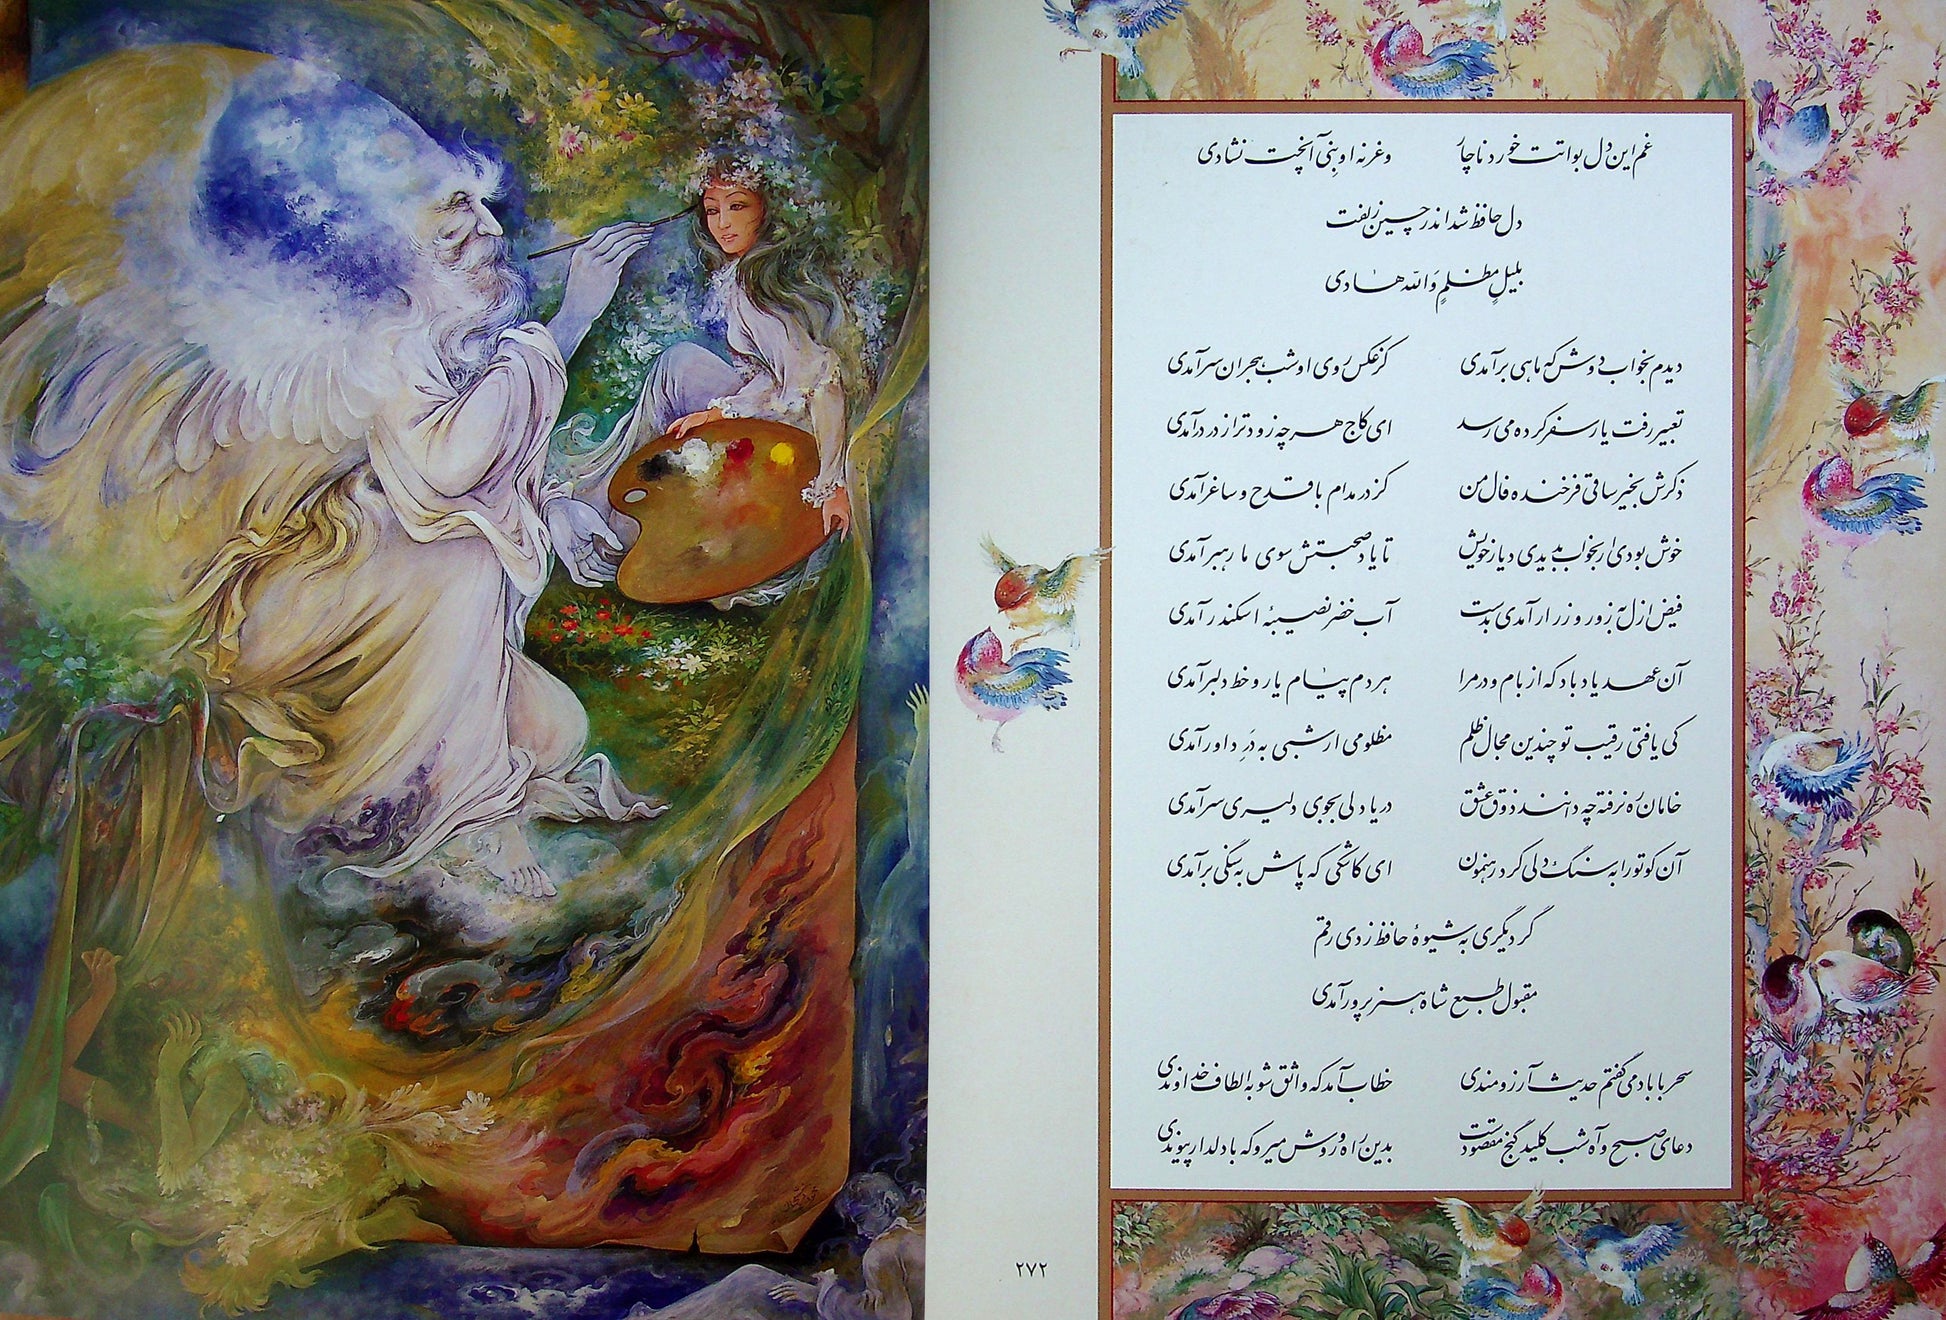 غم این دل بواتت خورد ناچار وغرنه او بنی آنچت نشادی
دل حافظ شد اندر چین زلفت
بلیلٍ مظلمٍ وَالله هادی
دیدم بخواب دوش که ماهی برآمدی کز عکس روی او شب هجران سرآمدی
تعبیر رفت یار سفر کرده می رسد ای کاج هر چه زودتر از در درآمدی
ذکرش بخیر ساقی فرخنده فال من کز در مدام با قدح و ساغر آمدی
خوش بودی ار بخواب بدیدی دیار خویش تا یاد صحبتش سوی ما رهبر آمدی
فیض ازل به زور و زر ار آمدی بدست آب خضر نصیبهٔ اسکندر آمدی
آن عهد یاد باد که از بام و در مرا هر دم پیام یار و خط دلبر آمدی
کی یافتی رقیب تو چندین مجال ظلم مظلومی ار شبی به دَرِ داور آمدی
خامان ره نرفته چه دانند ذوق عشق دریادلی بجوی دلیری سرآمدی
آن کو تو را به سنگ دلی کرد رهنمون ای کاشکی که پاش به سنگی برآمدی
گر دیگری به شیوهٔ حافظ زدی رقم
مقبول طبع شاه هنرپرور آمدی
سحر با باد می گفتم حدیث آرزومندی خطاب آمد که واثق شو به الطاف خداوندی
دعای صبح و آه شب کلید گنج مقصودست بدین راه و روش میرو که با دلدار پیوندی
۲۷۲